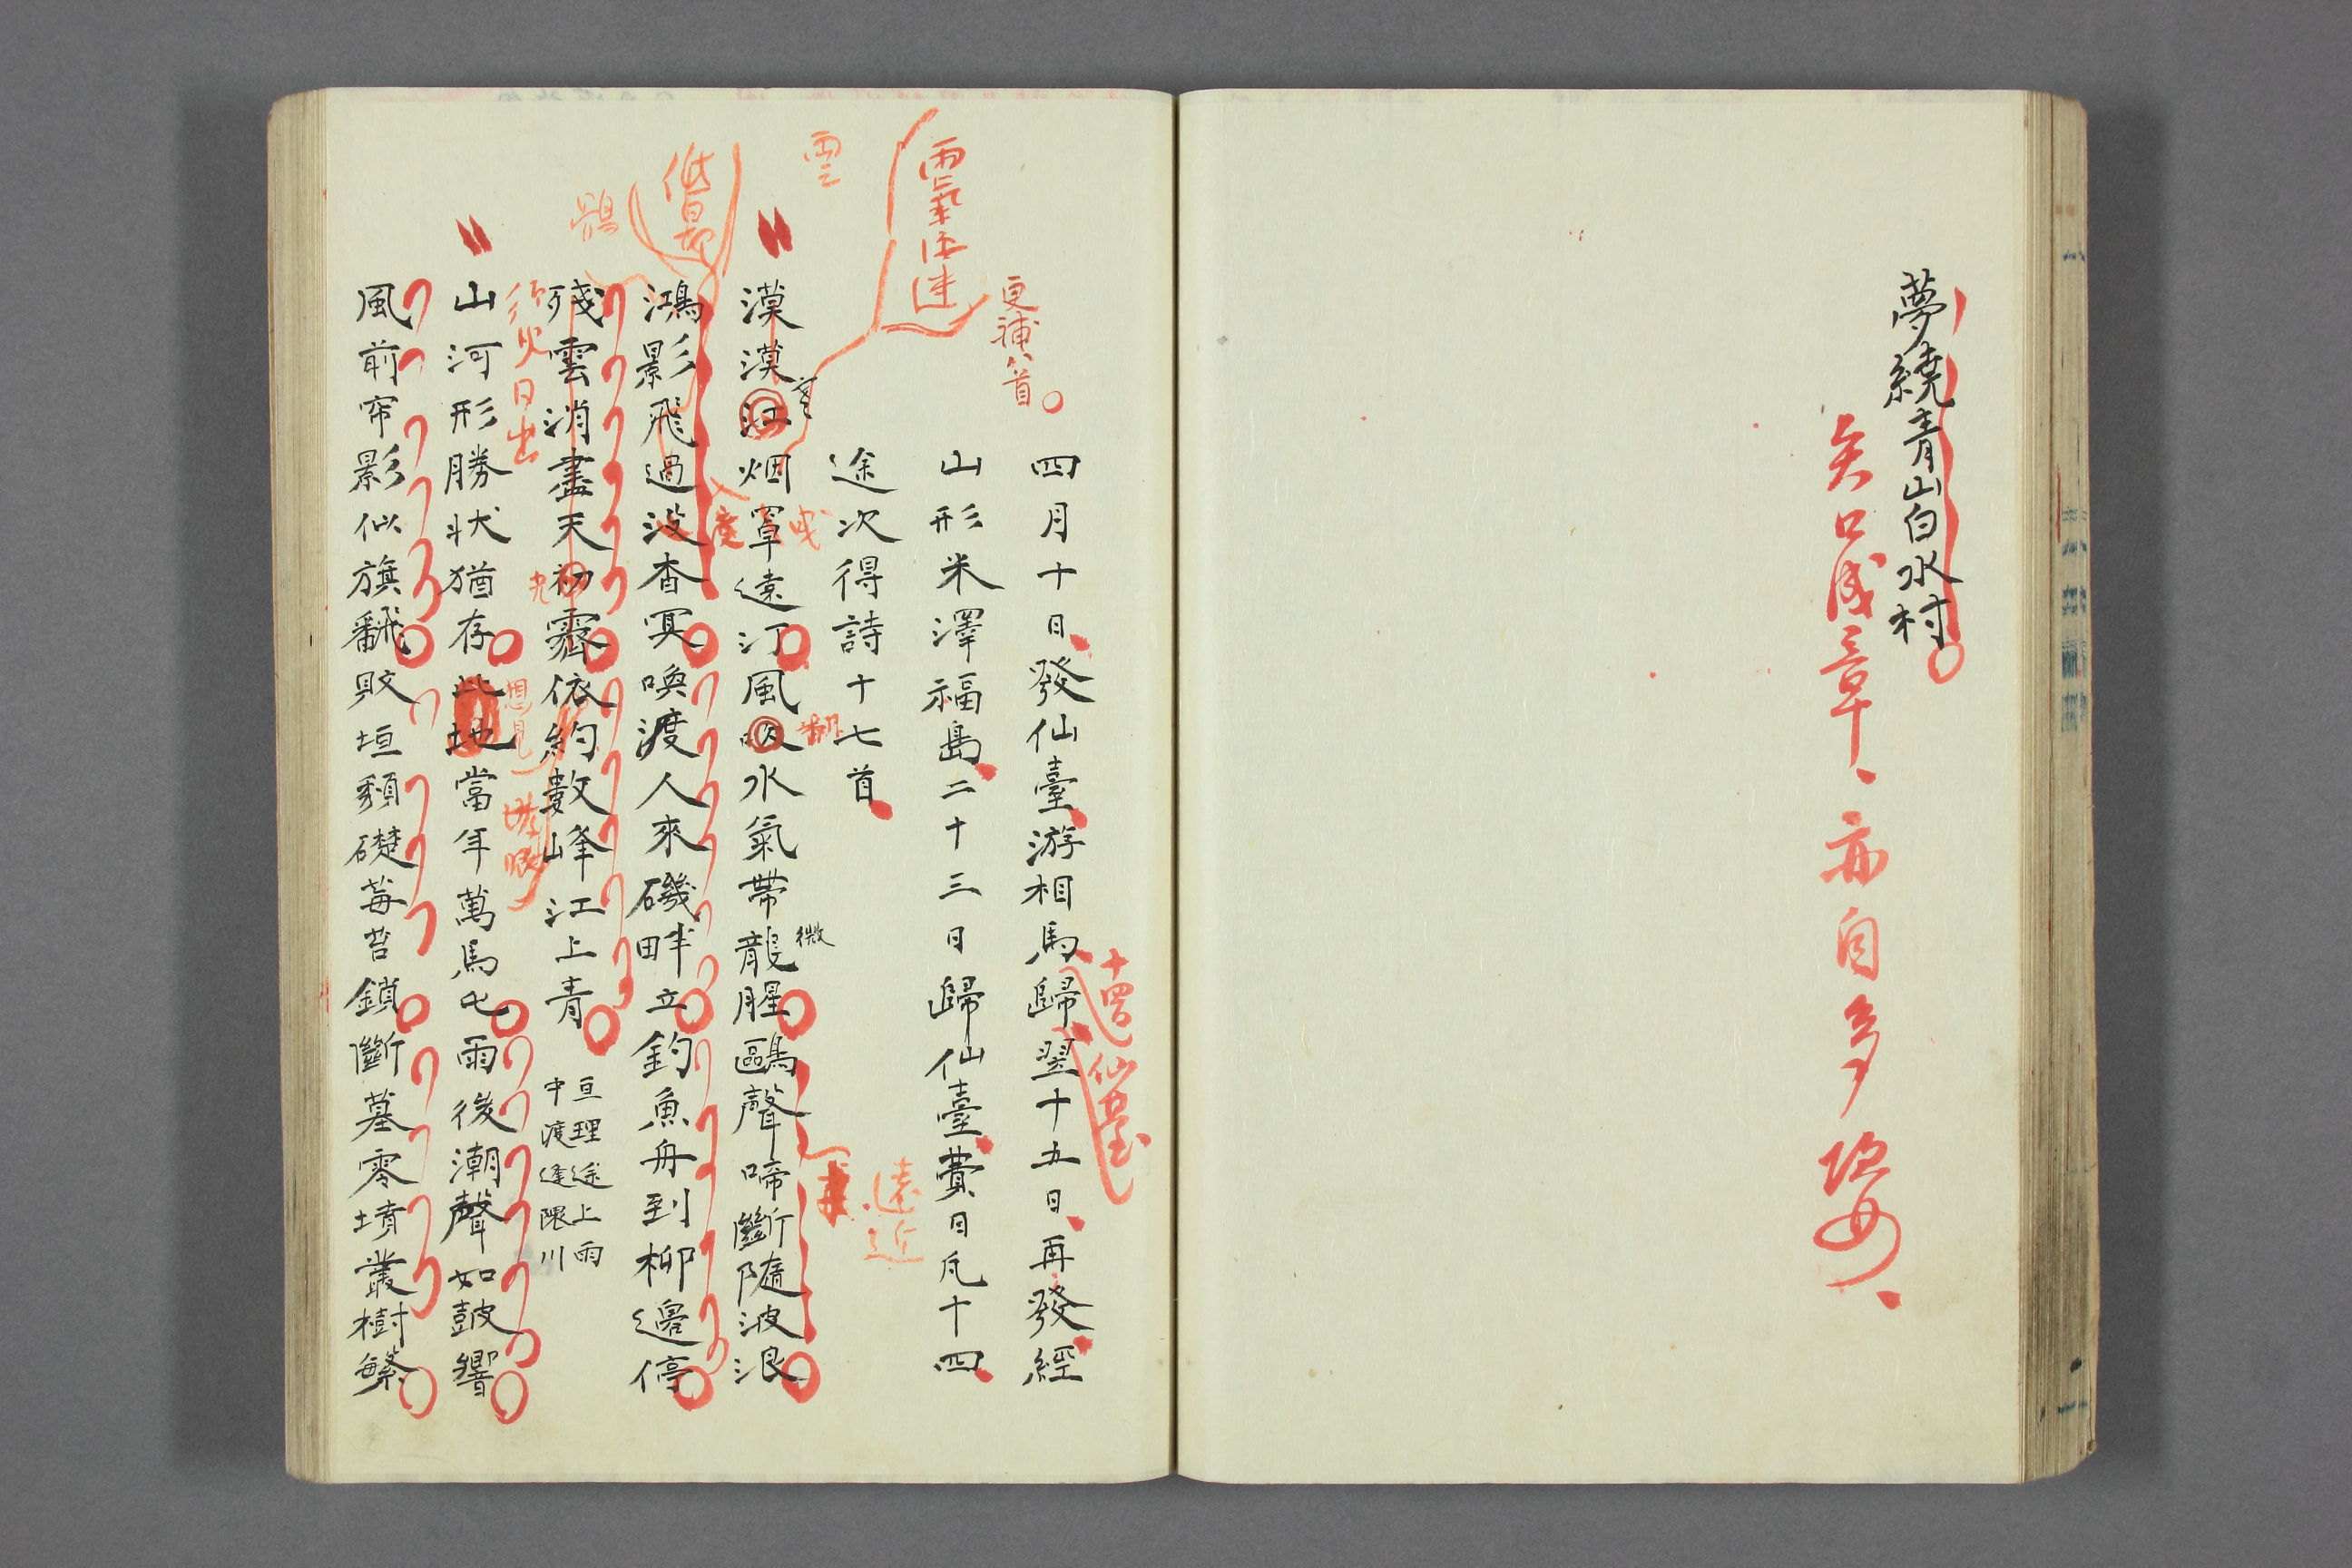 夢繞青山白水村
矢口成章、亦自多
四月十日發仙臺游相馬歸翌十五日再發經
十四日還仙臺
山形米澤福島二十三日歸仙臺費日凡十四
途次得詩十七首
更補八首
漠漠江烟罩遠汀風吹水氣帶龍腥鷗聲啼斷隨波浪
微
遠近
雲
鴻影飛過没杳冥喚渡人來磯畔立釣魚舟到柳邊停
殘雲消盡天初霽依約數峰江上青
亘理途上雨
中渡逢隈川
山河形勝狀猶存此地當年萬馬屯雨後潮聲如鼓響
想見
風前帘影似旗翻敗垣頽礎苺苔鎖斷墓零墳叢樹繁